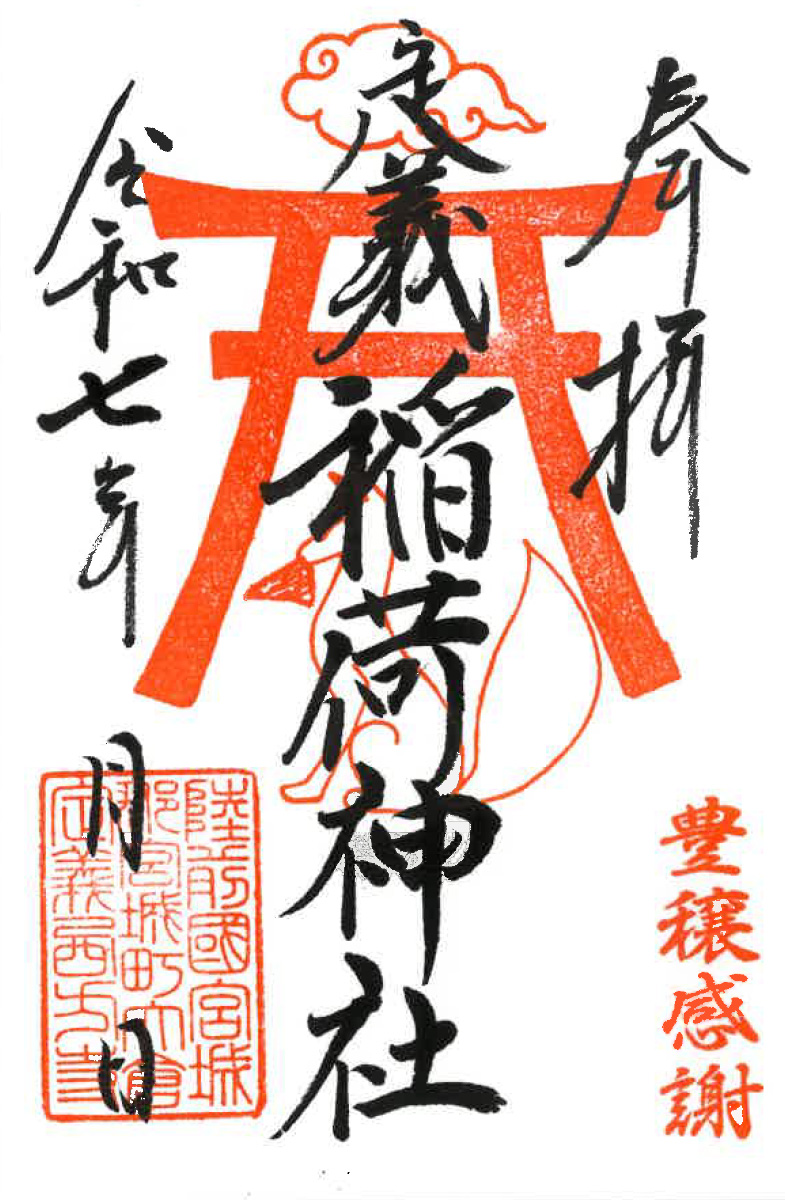 奉拝
豊穣感謝
定義稲荷神社
令和七年
月
日
陸前國宮城
郡宮城町大倉
定義西方寺